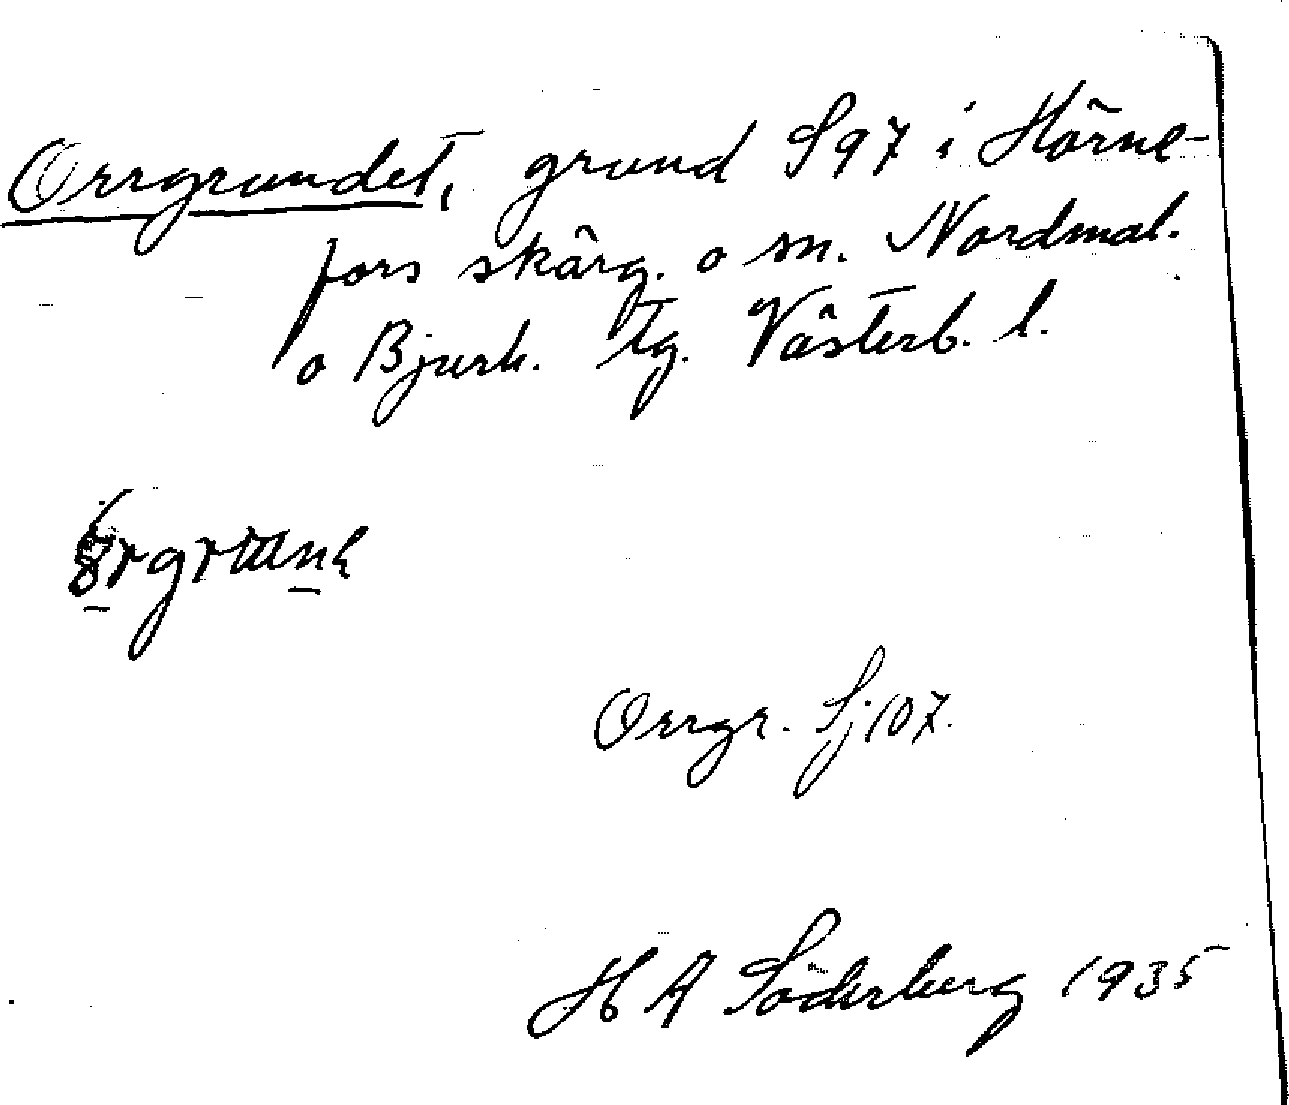 Orrgrundet, grund S97 i Hörne-
fors skärg. o sn. Nordmal.
o Bjurh. tg. Västerb. l.
Orrgr. Sj 107.
H A Söderberg 1935